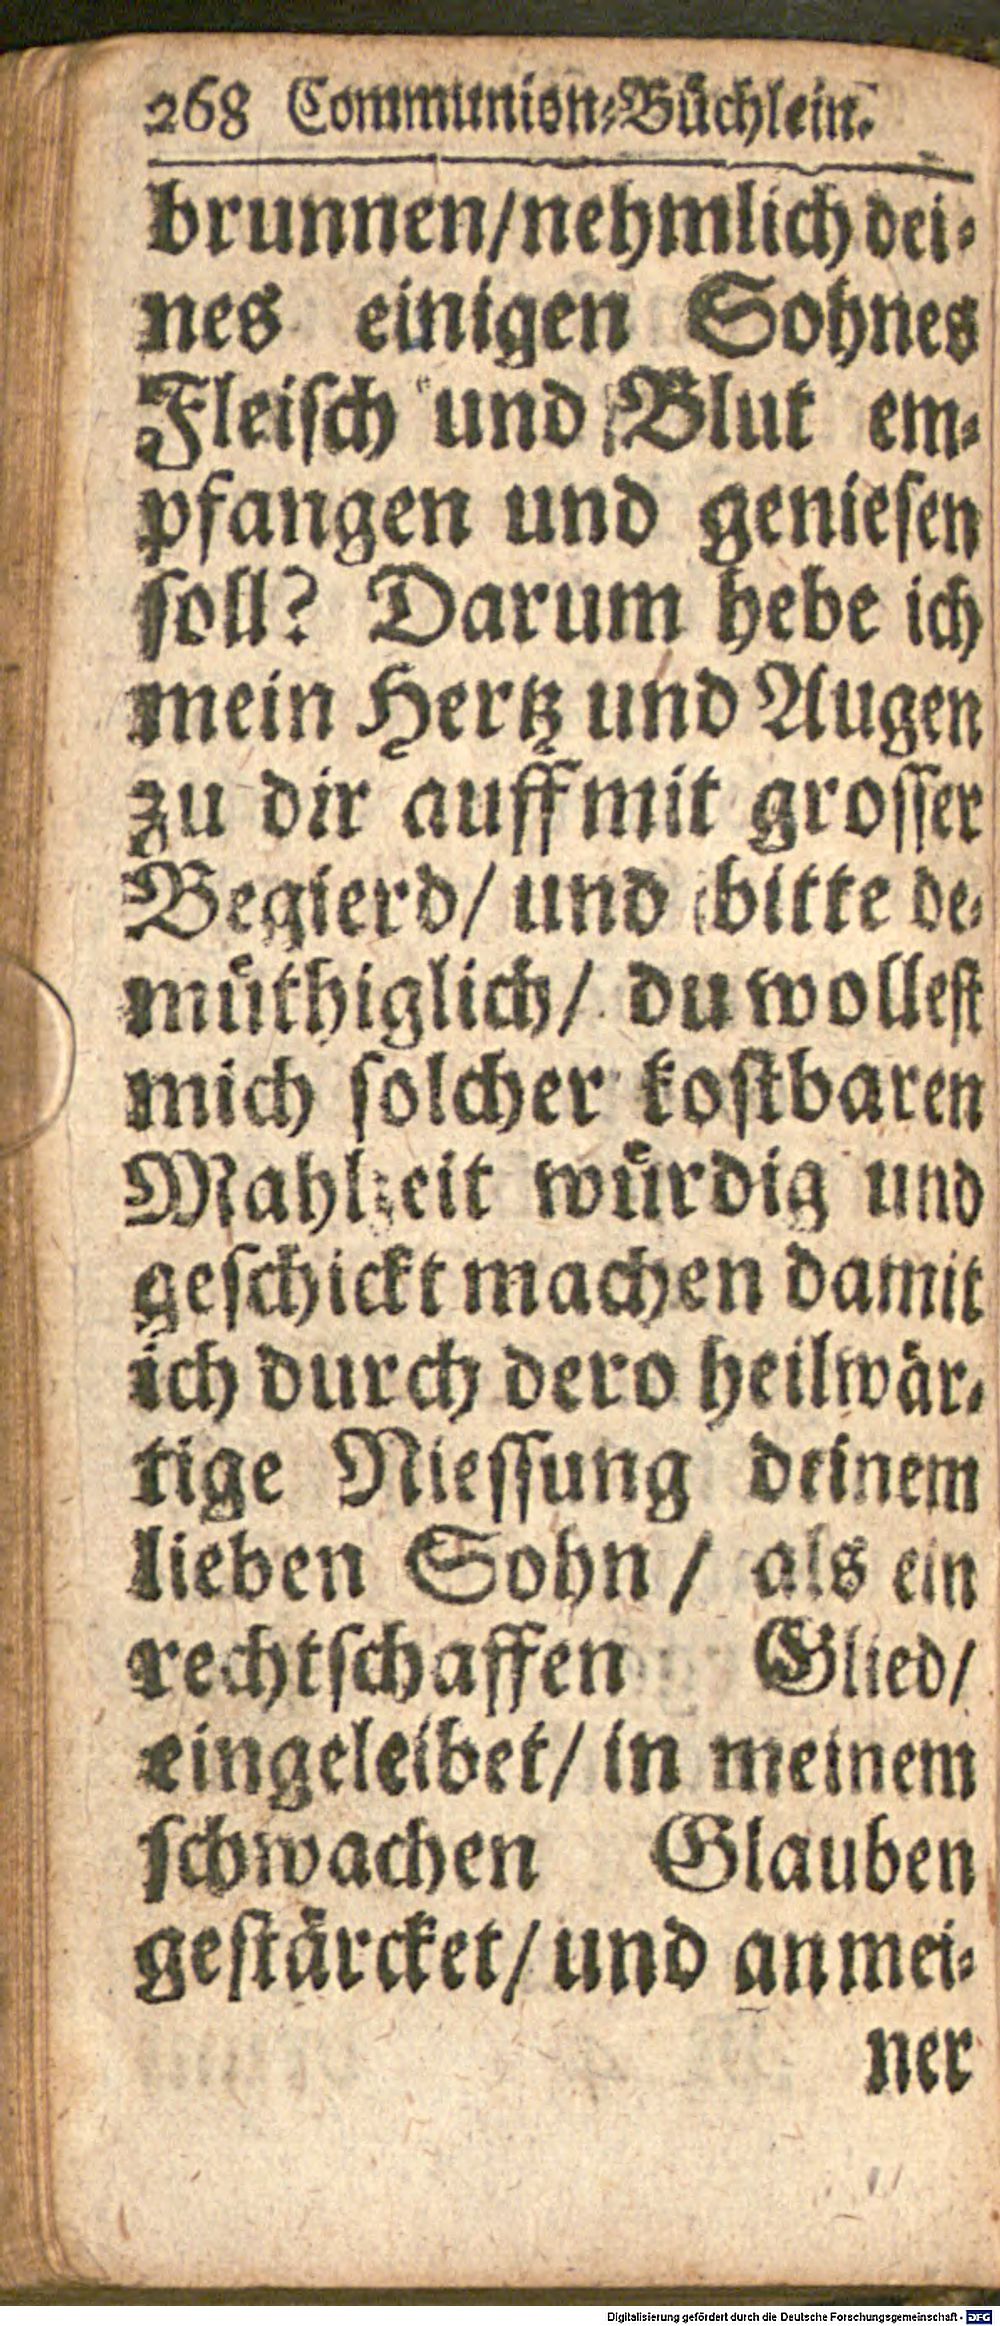 268 Communion⸗Buͤchlein.
brunnen/nehmlich dei⸗
nes einigen Sohnes
Fleiſch und Blut em⸗
pfangen und genieſen
ſoll? Darum hebe ich
mein Hertz und Augen
zu dir auff mit groſſer
Begierd/ und bitte de⸗
muͤthiglich/ du wolleſt
mich ſolcher koſtbaren
Mahlzeit wuͤrdig und
geſchickt machen damit
ich durch dero heilwaͤr⸗
tige Nieſſung deinem
lieben Sohn/ als ein
rechtſchaffen Glied/
eingeleibet/ in meinem
ſchwachen Glauben
geſtaͤrcket/ und an mei⸗
ner
Digitalisierung gefördert durch die Deutsche Forschungsgemeinschaft - DFG